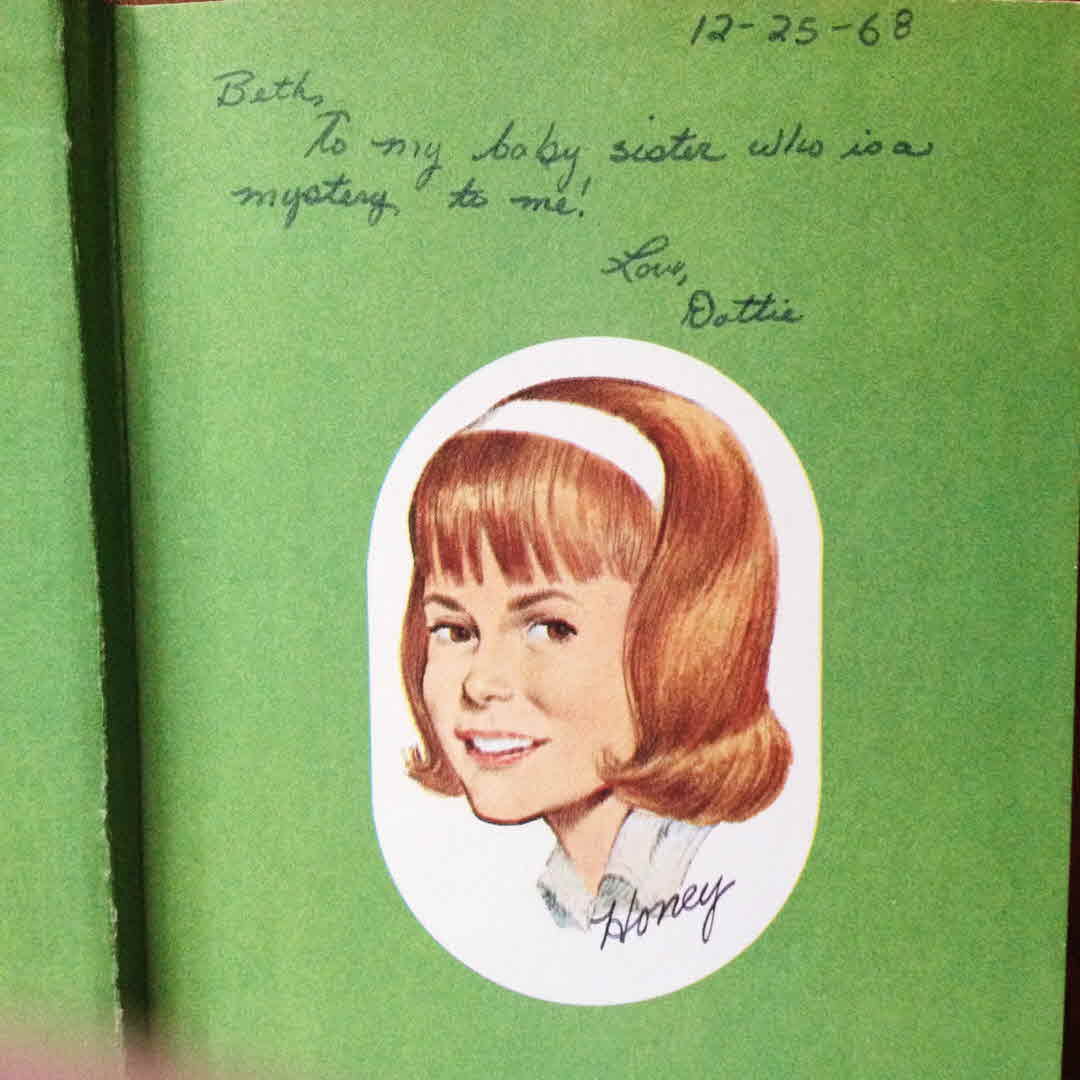 12-25-68
Beth,
To my baby sister who is a
mystery to me!
Love,
Dottie
Honey